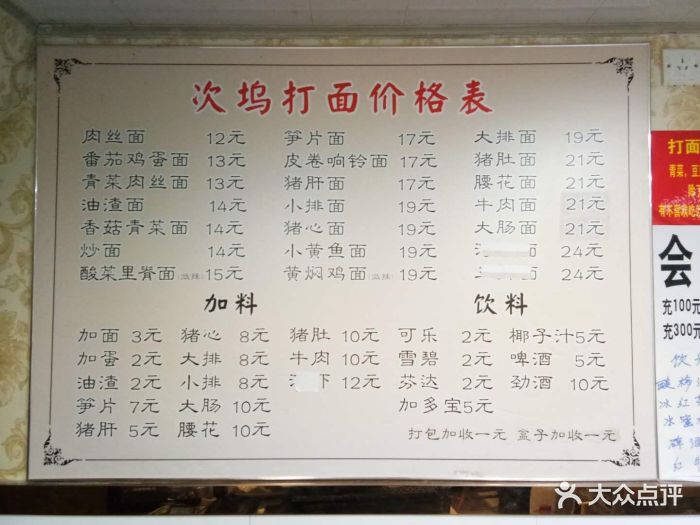 次坞打面价格表
肉丝面 12元 笋片面 17元 大排面 19元
番茄鸡蛋面 13元 皮卷响铃面 17元 猪肚面 21元
青菜肉丝面 13元 猪肝面 17元 腰花面 21元
油渣面 14元 小排面 19元 牛肉面 21元
香菇青菜面 14元 猪心面 19元 大肠面 21元
炒面 14元 小黄鱼面 19元 面 24元
酸菜里脊面(微辣) 15元 黄焖鸡面(微辣) 19元 面 24元
加料 饮料
加面 3元 猪心 8元 猪肚 10元 可乐 2元 椰子汁5元
加蛋 2元 大排 8元 牛肉 10元 雪碧 2元 啤酒 5元
油渣 2元 小排 8元 虾 12元 芬达 2元 劲酒 10元
笋片 7元 大肠 10元 加多宝5元
猪肝 5元 腰花 10元 打包加收一元 盒子加收一元
打面
青菜，豆
会
充100元
充300元
大众点评